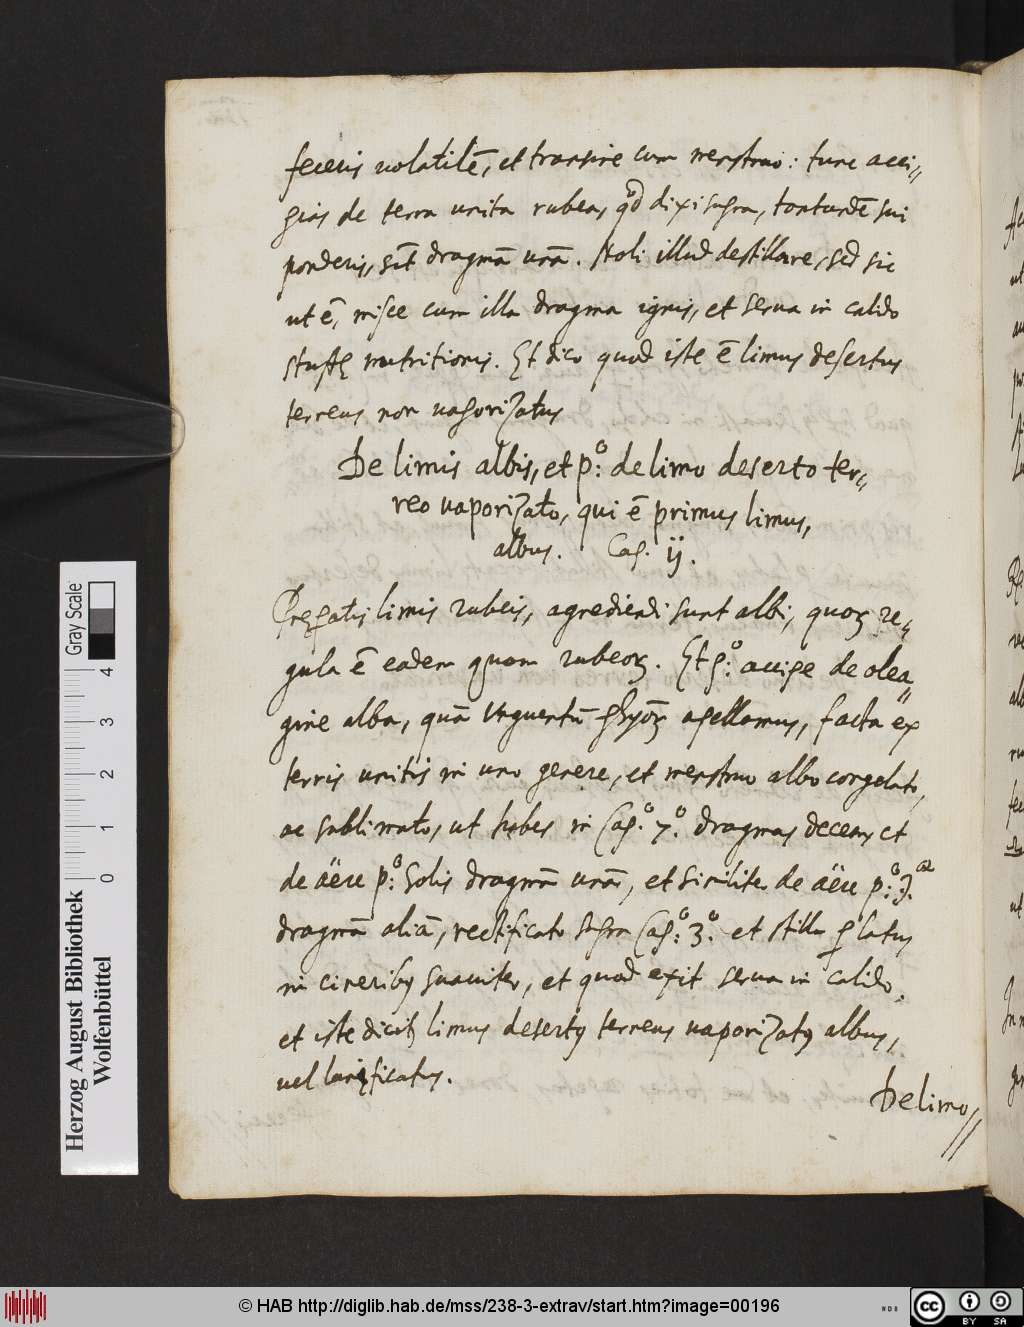 feceris volatilē, et transire cum menstruo: tunc acci„
pias de terra unita rubea, qd dixi supra, tantundē sui
ponderis, sīt dragmā unā. Noli illud destillare, sed sic
ut ē, misce cum illa dragma ignis, et serva in calido
nutritionis. Et dico quod iste ē limus desertus
terreus non vaporizatus
De limis albis, et p:º de limo deserto ter„
reo vaporizato, qui ē primus limus,
albus. Cap. ij.
limis rubeis, agrediendi sunt albi, quoꝝ re„
gula ē eadem quam rubeoꝝ. Et p:º accipe de olea„
gine alba, quā unguentū appellamus, facta ex
terris unitis in uno genere, et menstruo albo congelato,
ac sublimato, ut habes in Cap:º 7:º dragmas decem, et
de aëre p:º Solis dragmā unā, et similiter de aëre p:º
dragmā aliā, rectificato supra Cap:º 3:º et stilla latus
in cineribꝰ suaviter, et quod exit serva in calido.
et iste dicitꝛ limus desertꝰ terreus vaporizatꝰ albus,
vel lunificatus.
De limo
Herzog August Bibliothek
Wolfenbüttel
Gray Scale
0 1 2 3 4
© HAB http://diglib.hab.de/mss/238-3-extrav/start.htm?image=00196
cc BY SA